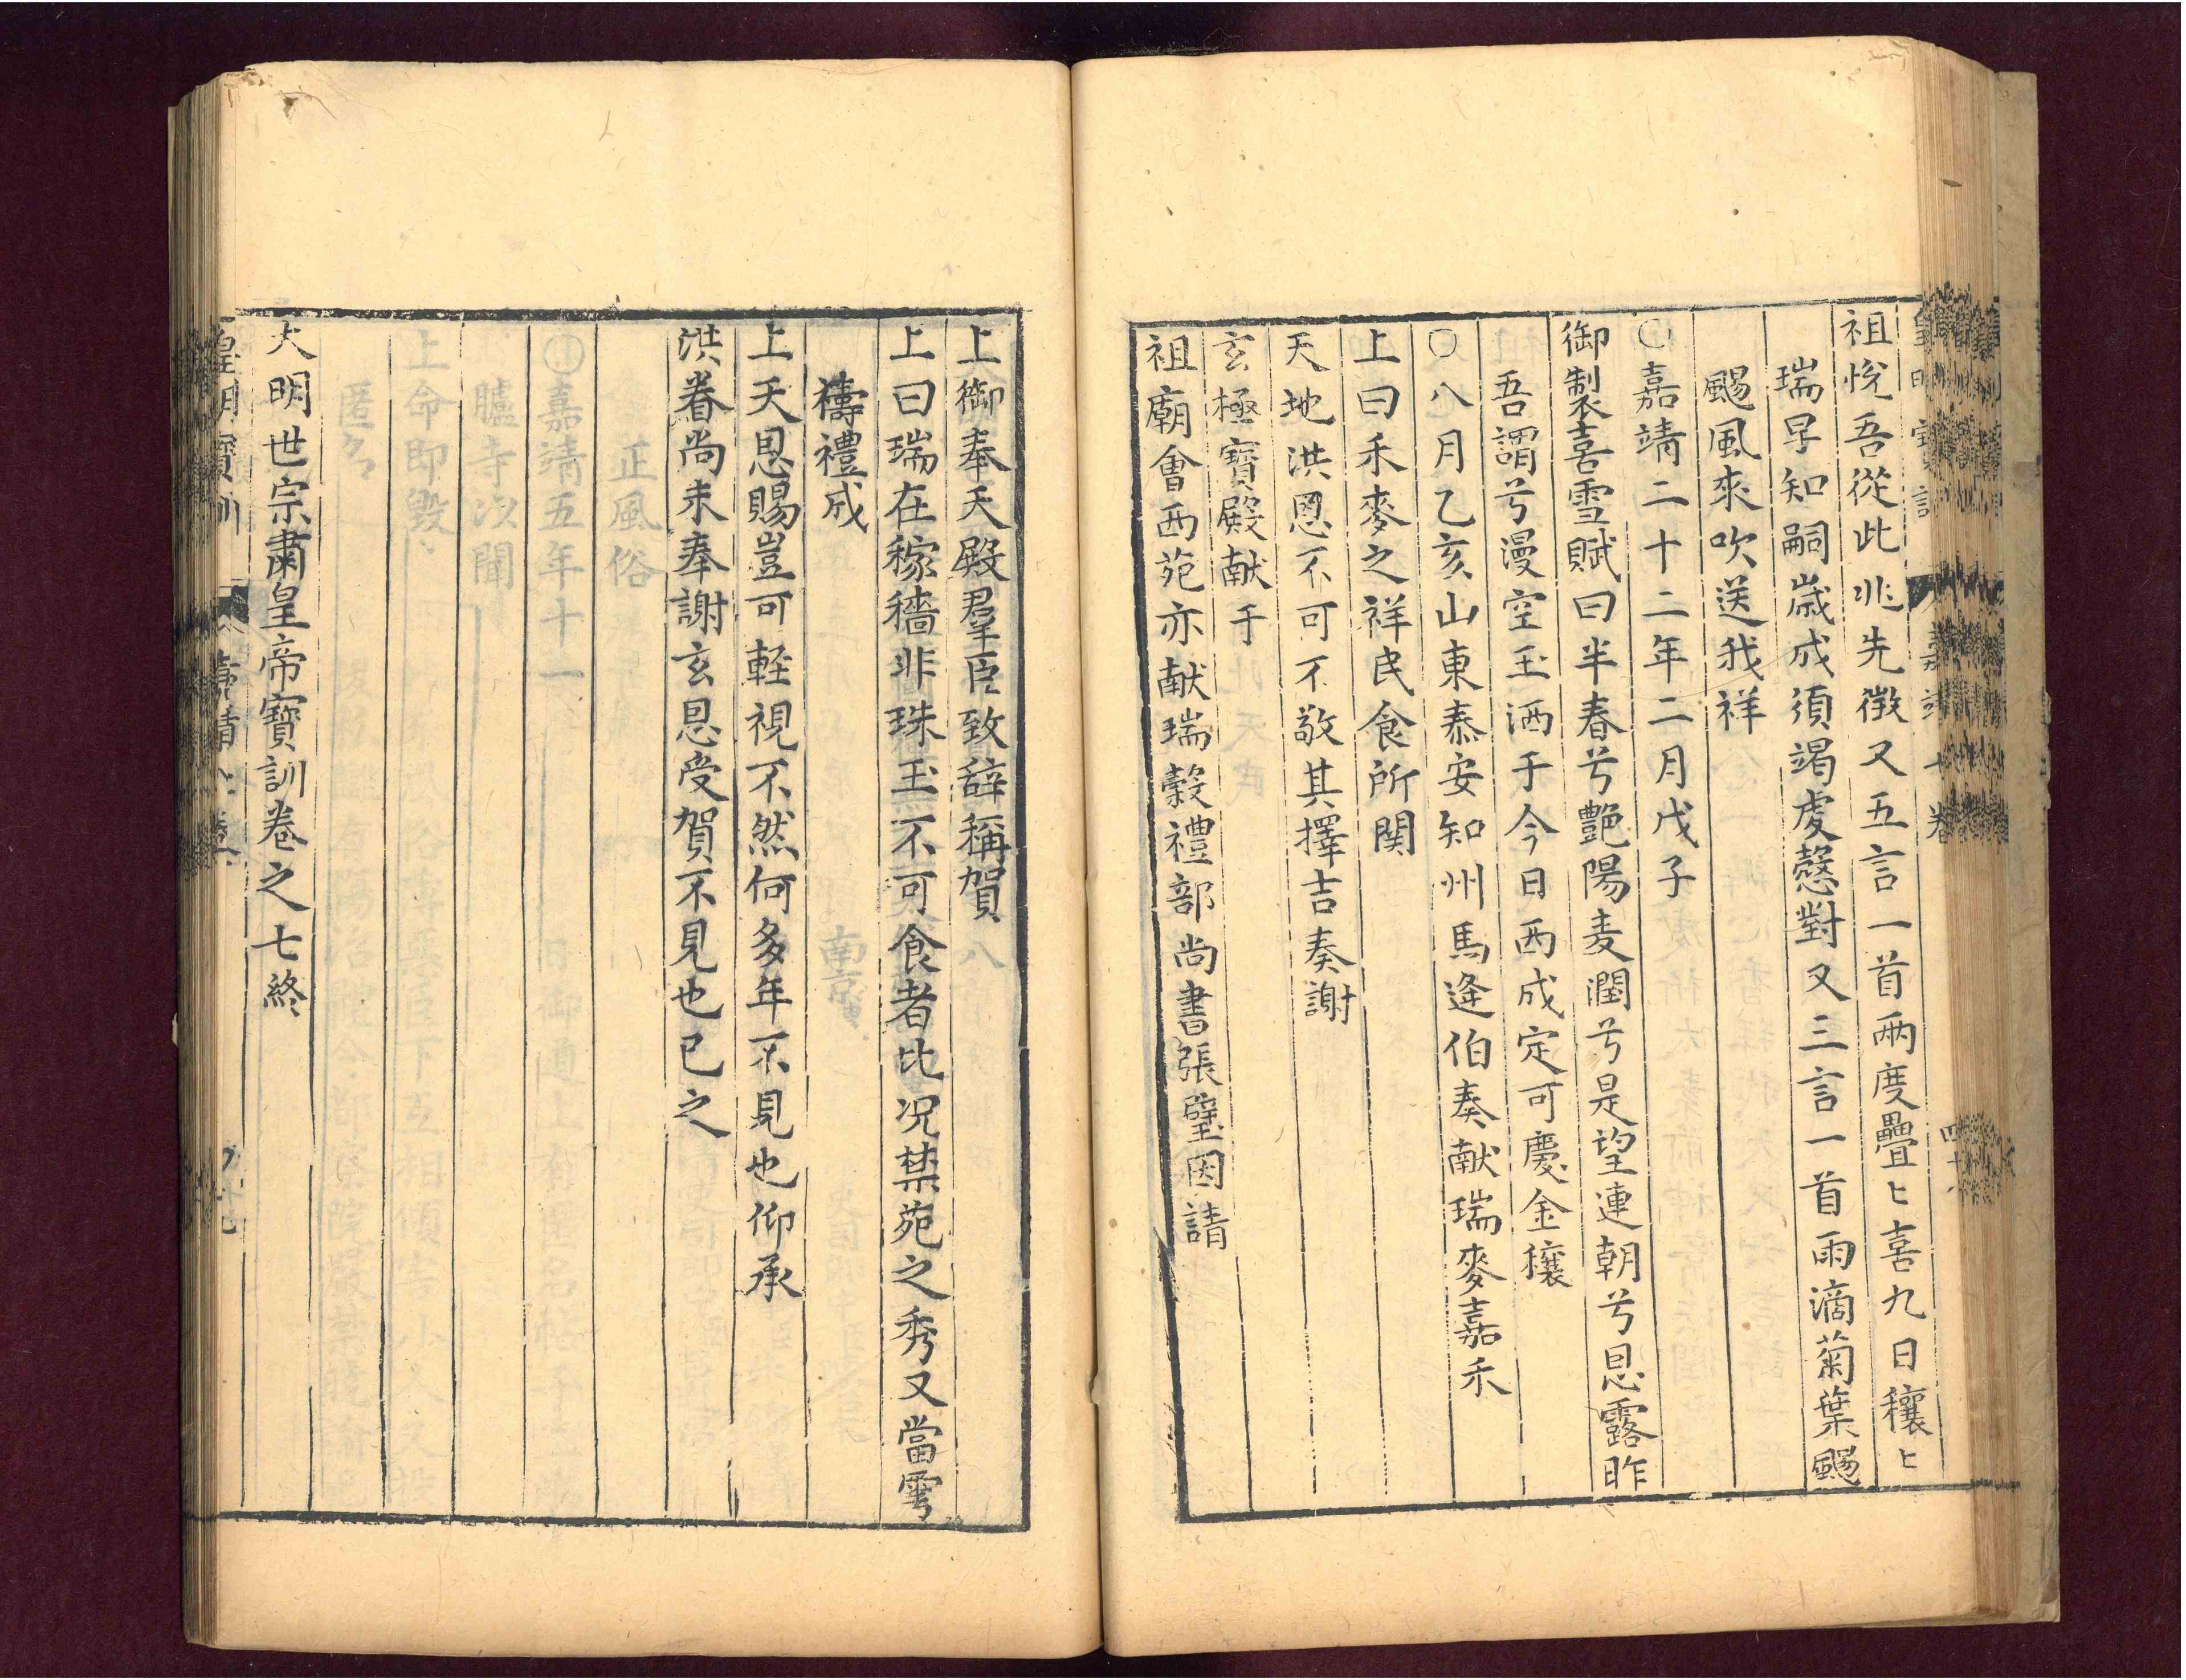 祖悅吾從此兆先徵又五言一首兩度疊〻喜九日穰〻
瑞早知嗣歲成須竭虔慤對又三言一首雨滴菊葉颺
颺風來吹送我祥
〇嘉靖二十二年二月戊子
御製喜雪賦曰半春兮艷陽麦潤兮是望連朝兮恩露昨
吾謂兮漫空玉洒于今日西成定可慶金穰
〇八月乙亥山東泰安知州馬逢伯奏献瑞麥嘉禾
上曰禾麥之祥民食所関
天地洪恩不可不敬其擇吉奏謝
玄極寶殿献于
祖廟會西苑亦献瑞穀禮部尚書張璧因請
上御奉天殿羣臣致辞稱賀
上曰瑞在稼穡非珠玉不可食者比况禁苑之秀又當雩
禱禮成
上天恩賜豈可輊視不然何多年不見也仰承
洪眷尚未奉謝玄恩受賀不見也已之
大明世宗肅皇帝寶訓卷之七終
皇明寶訓